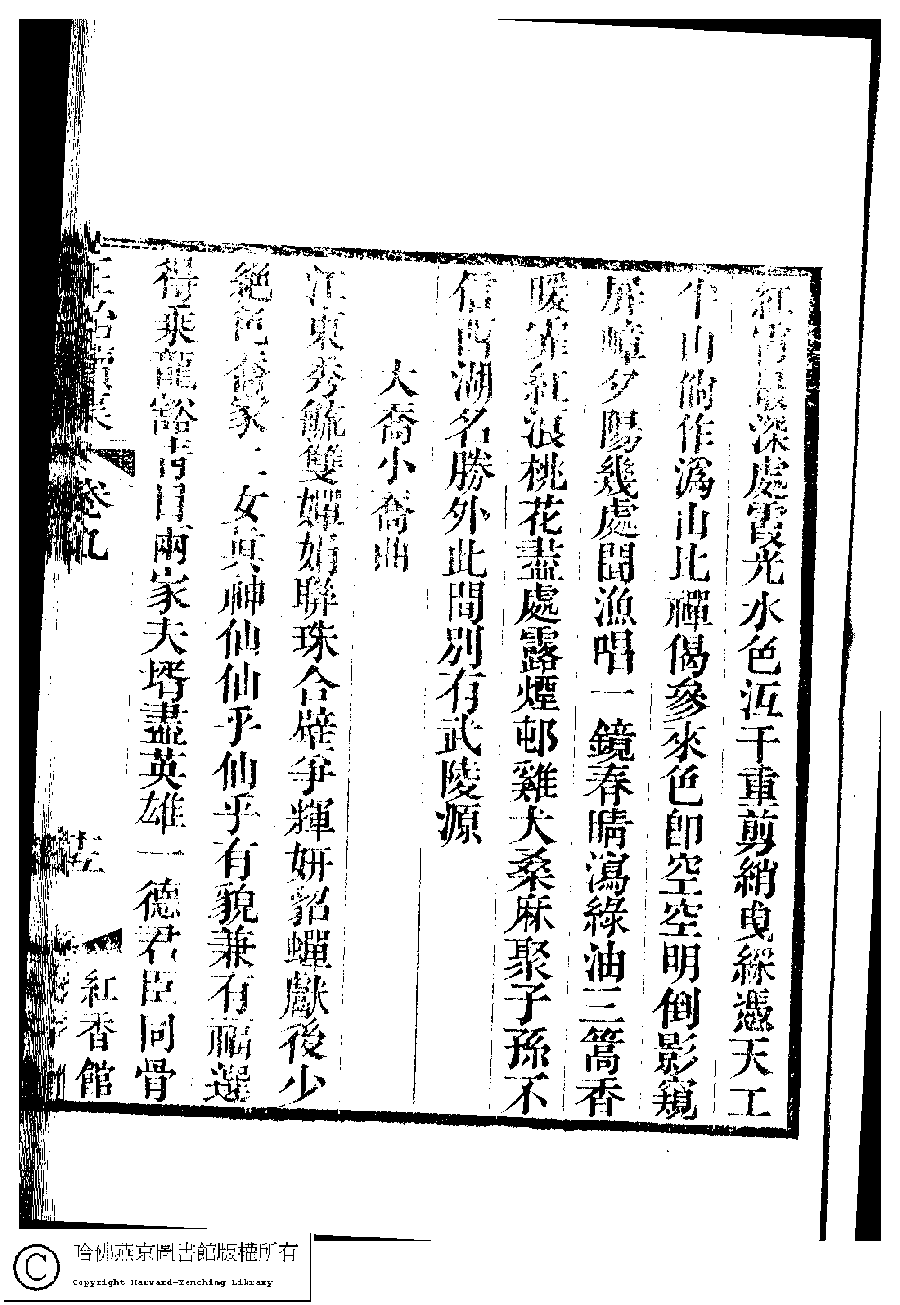 紅霄最深處霞光水色沍千重剪綃曳綵憑天工
半山倘作溈山比禪偈參來色卽空空明倒影窺
屏嶂夕陽幾處聞漁唱一鏡春晴瀉綠油三篙香
暖霏紅浪桃花盡處露煙邨雞犬桑麻聚子孫不
信西湖名勝外此間別有武陵源
大喬小喬曲
江東秀毓雙嬋娟聯珠合璧爭輝妍貂蟬獻後少
絕色喬家二女真神仙仙乎仙乎有貌兼有福選
得乘龍豁靑目兩家夫壻盡英雄一德君臣同骨
正始續集
卷九
十五
紅香館
哈佛燕京圖書館版權所有
Copyright Harvard-Yenching Library